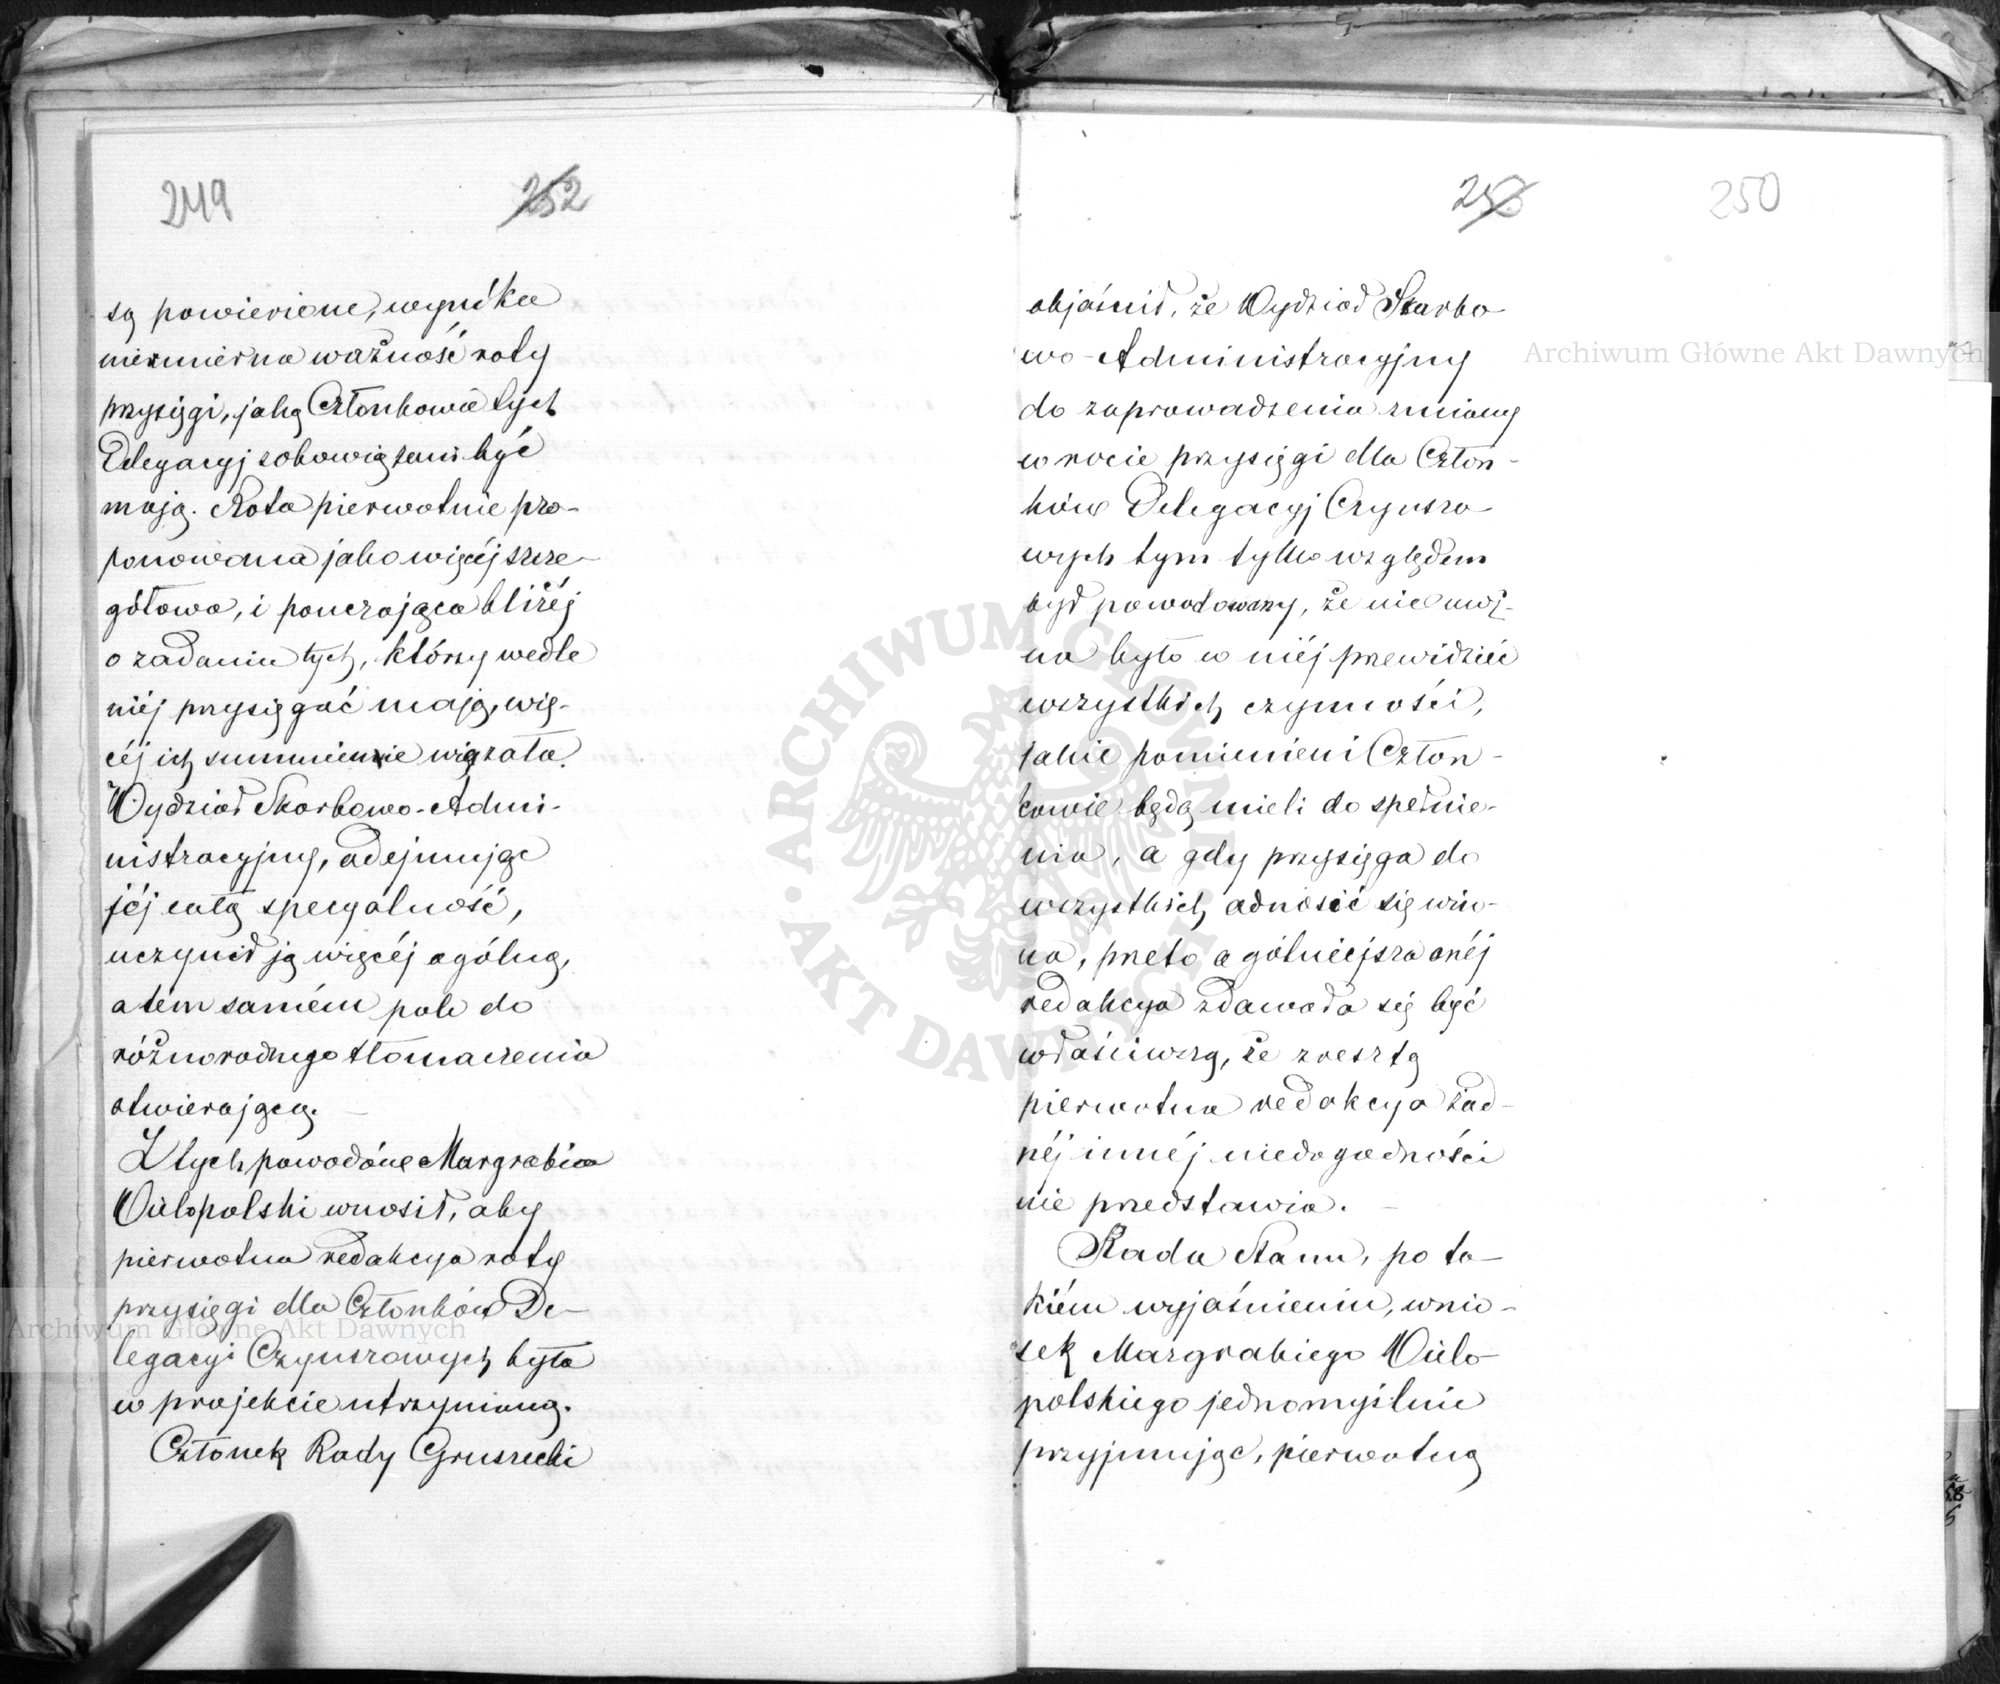 249 252
są powierione, wynika
niezmierna ważność roty
przysięgi, jaką Członkowie tych
Delegacyj zobowiązani być
mają. Rota pierwotnie pro-
ponowana jako więcéj szcze-
gółowa, i pouczająca bliżéj
o zadaniu tych, którzy wedle
niéj przysięgać mają, wię-
céj ich summienie wiązała.
Wydział Skarbowo-Admi-
nistracyjny, odejmując
jéj całą specyalność,
uczynił ją więcéj ogólną,
a tém samém pole do
różnorodnego tłomaczenia
otwierającą.
Z tych powodów Margrabia
Wielopolski wnosił, aby
pierwotna redakcya roty
przysięgi dla Członków De-
legacyi Czynszowych była
w projekcie utrzymaną.
Członek Rady Gruszecki
253 250
objaśnił, że Wydział Skarbo-
wo-Administracyjny
do zaprowadzenia zmiany
w rocie przysięgi dla Człon-
ków Delegacyj Czynszo-
wych tym tylko względem
był powodowany, że nie moż-
na było w niéj przewidzieć
wszystkich czynności,
jakie pomienieni Człon-
kowie będą mieli do spełnie-
nia, a gdy przysięga do
wszystkich odnosić się win-
na, przeto ogólniejsza onéj
redakcya zdawała się być
właściwszą, że zresztą
pierwotna redakcya żad-
néj innéj niedogodności
nie przedstawia.
Rada Stanu, po ta-
kiém wyjaśnieniu, wnio-
sek Margrabiego Wielo-
polskiego jednomyślnie
przyjmując, pierwotną
Archiwum Główne Akt Dawnych
Archiwum Główne Akt Dawnych
ARCHIWUM GŁÓWNE
AKT DAWNYCH